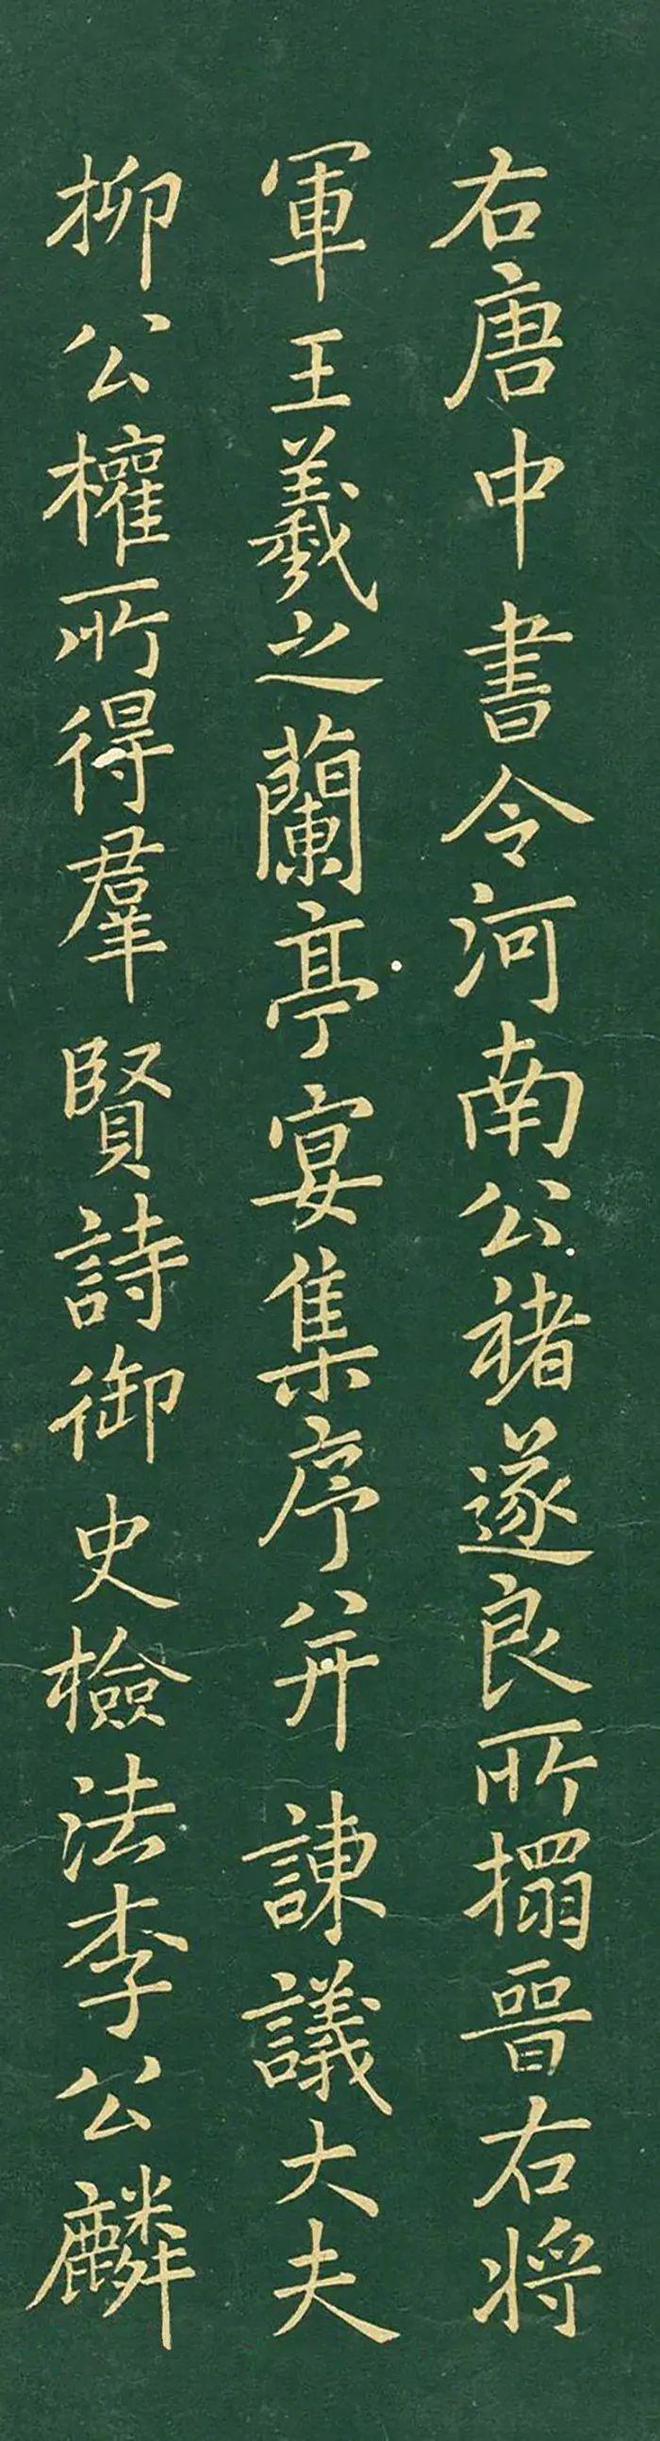 右唐中書令河南公褚遂良所搨晉右將
軍王羲之蘭亭宴集序并諫議大夫
柳公權所得羣賢詩御史檢法李公麟